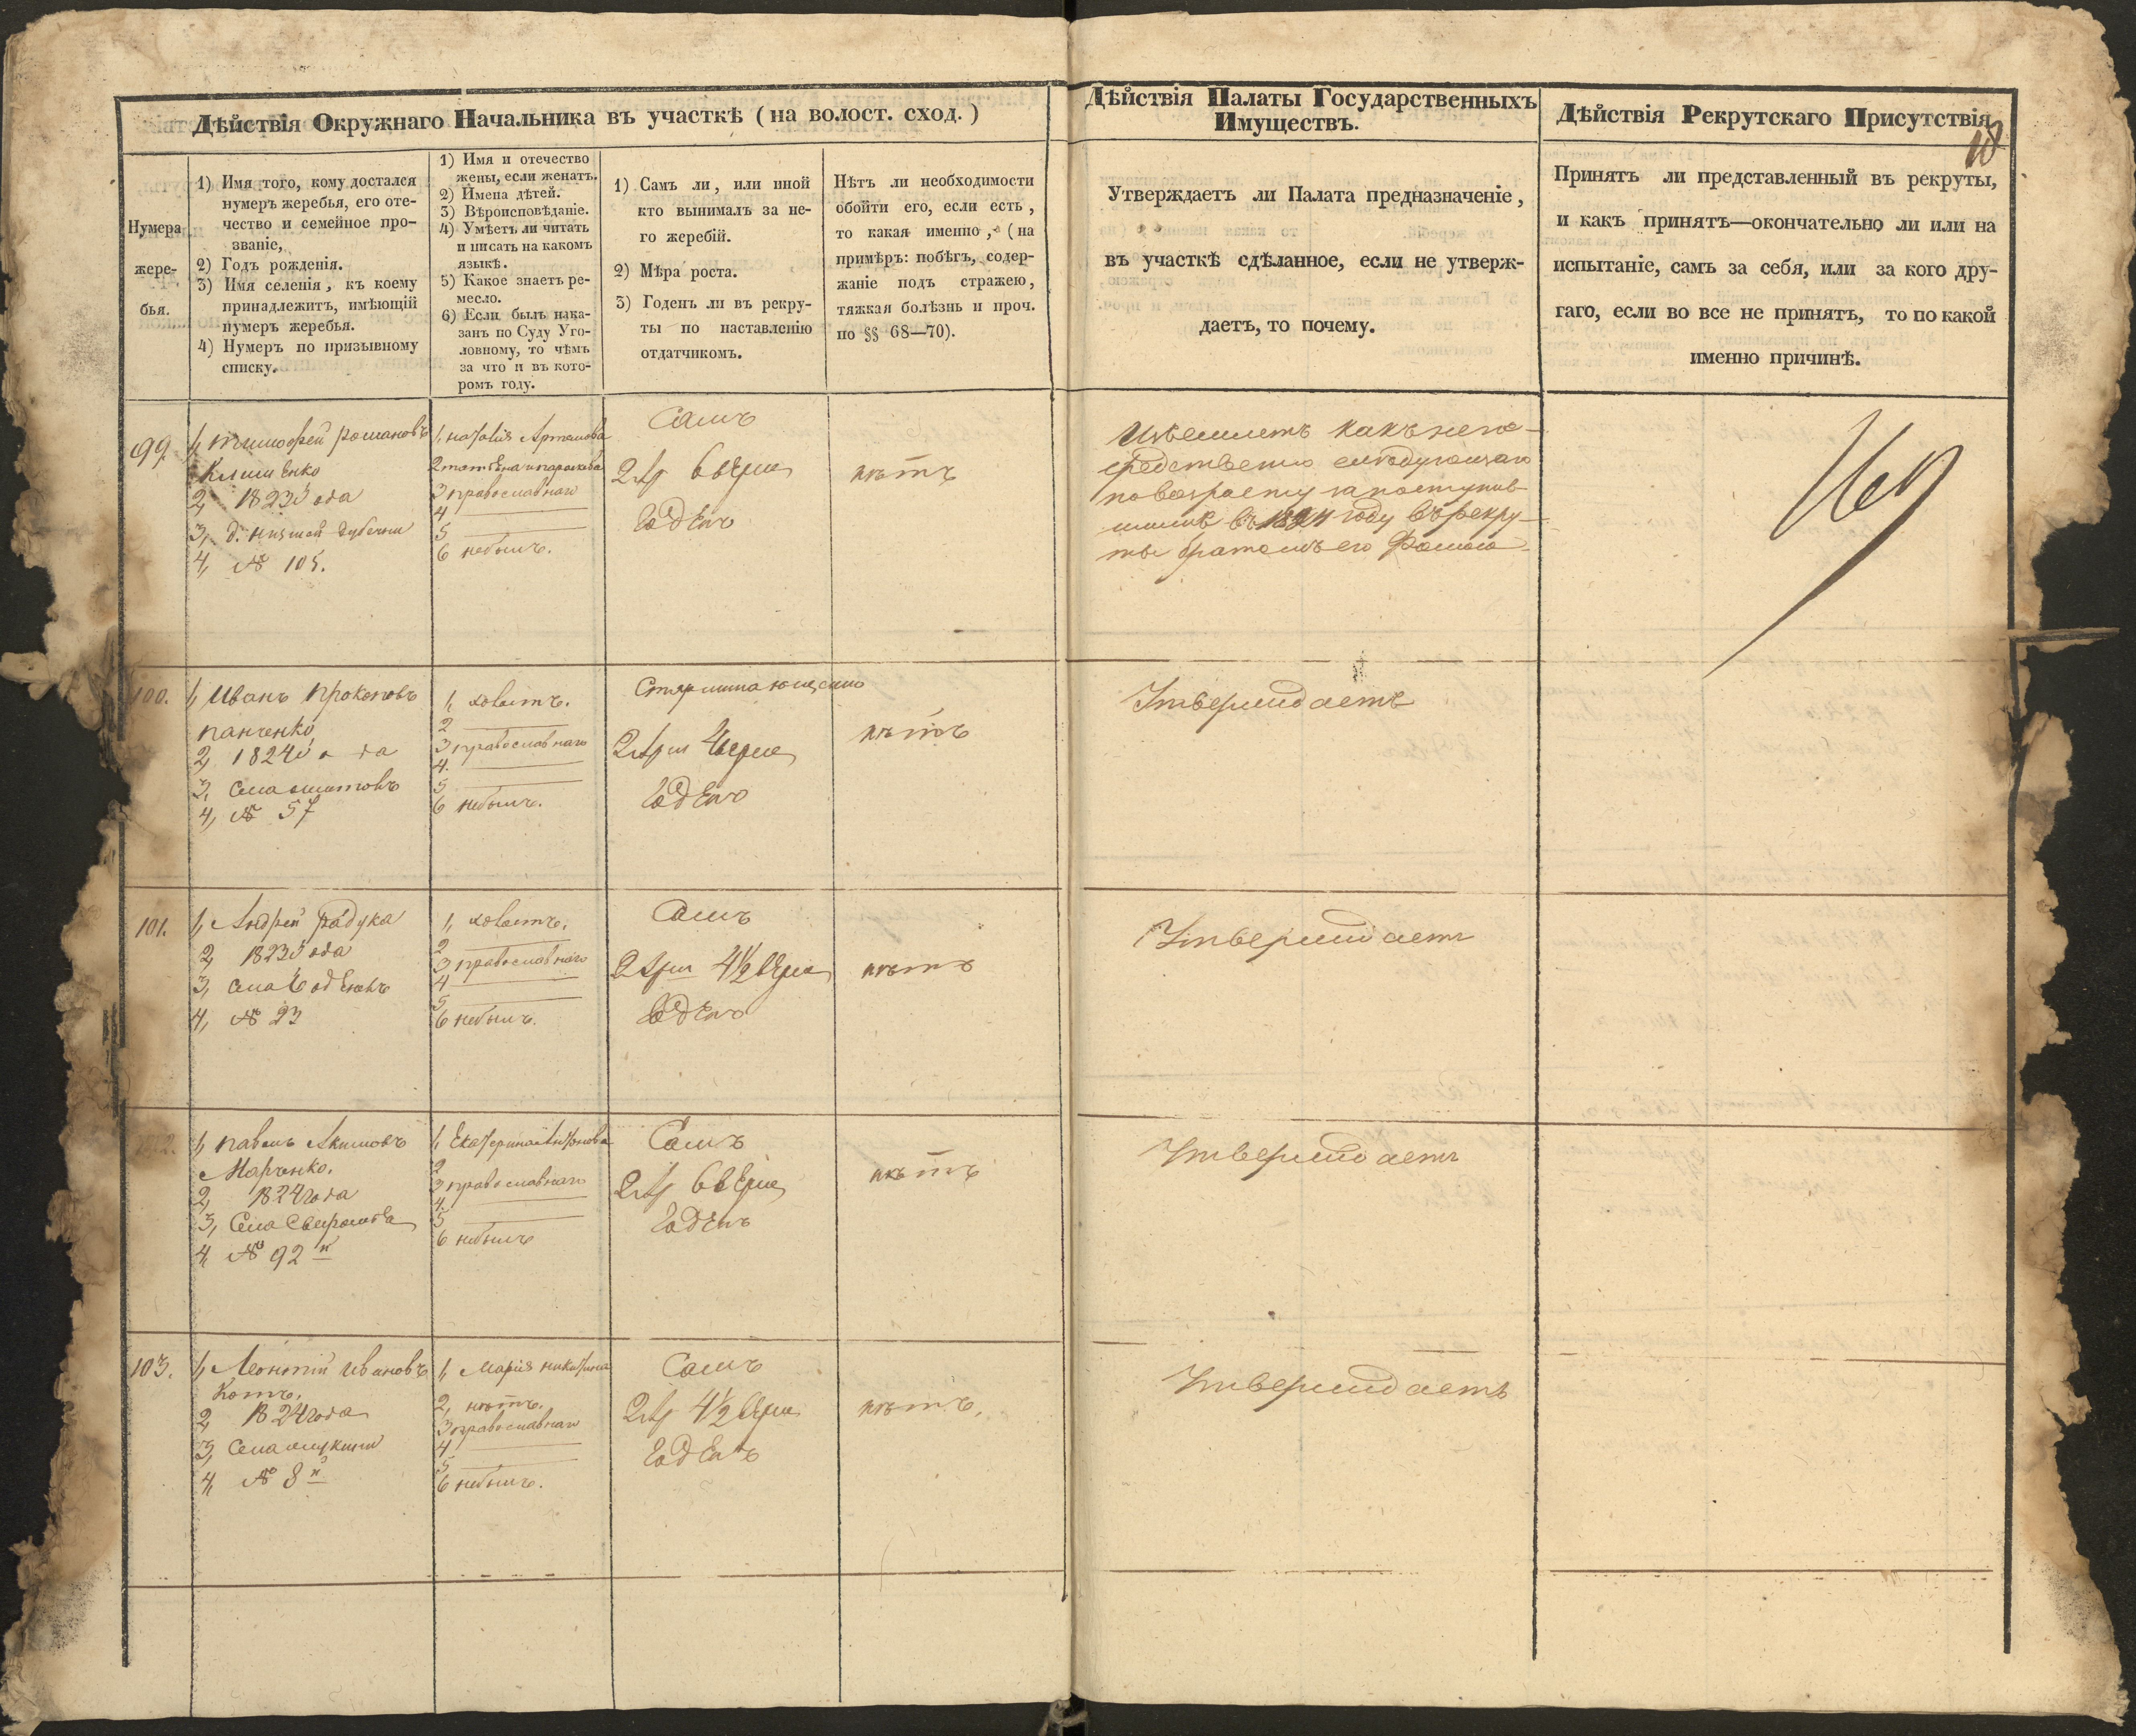 Дѣйствія Окружнаго Начальника въ участкѣ (на волост. сход.)
Дѣйствія Палаты Государственныхъ
Имуществъ.
Дѣйствія Рекрутскаго Присутствія
Нумера
жере-
бья.
1) Имя того, кому достался
нумеръ жеребья, его оте-
чество и семейное про-
званіе,
2) Годъ рожденія.
3) Имя селенія, къ коему
принадлежитъ, имѣющій
нумеръ жеребья.
4) Нумеръ по призывному
списку.
1) Имя и отечество
жены, если женатъ.
2) Имена дѣтей.
3) Вѣроисповѣданіе.
4) Умѣетъ ли читать
и писать на какомъ
языкѣ.
5) Какое знаетъ ре-
месло.
6) Если былъ нака-
занъ по Суду Уго-
ловному, то чѣмъ
за что и въ кото-
ромъ году.
1) Самъ ли, или иной
кто вынималъ за не-
го жеребій.
2) Мѣра роста.
3) Годенъ ли въ рекру-
ты по наставленію
отдатчикомъ.
Нѣтъ ли необходимости
обойти его, если есть,
то какая именно, (на
примѣръ: побѣгъ, содер-
жаніе подъ стражею,
тяжкая болѣзнь и проч.
по §§ 68—70).
Утверждаетъ ли Палата предназначеніе,
въ участкѣ сдѣланное, если не утверж-
даетъ, то почему.
Принятъ ли представленный въ рекруты,
и какъ принятъ—окончательно ли или на
испытаніе, самъ за себя, или за кого дру-
гаго, если во все не принятъ, то по какой
именно причинѣ.
99.
1, тимофей романовъ
Клименко
2, 1823 года
3, д. низшей дубечни
4, № 105.
1, наталія Артемова
3 православнаго
4
5
6 небылъ.
Самъ
2 ар 6 верш
Годенъ
нѣтъ
какъ непо-
средственно следующаго
по возрасту за поступив-
шимъ въ году въ рекру-
ты братомъ его
100.
1, Иванъ прокоповъ
панченко
2, 1824 года
3, села
4, № 57
1, холостъ.
2
3 православнаго
4.
5
6 небылъ.
2 арш 4 верш
Годенъ
нѣтъ
Утверждаетъ
101.
1, Андрей радука
2, 1823 года
3, села
4, № 23
1, холостъ.
2
3 православнаго
4
5
6 небылъ.
Самъ
2 арш 4½ верш
Годенъ
нѣтъ
Утверждаетъ
102.
1, павелъ Акимовъ
Марченко.
2, 1824 года
3, Села
4, № 92 й
1, Екатерина Антонова
2
3 православнаго
4.
5
6 небылъ
Самъ
2 ар 6 верш
Годенъ
нѣтъ
Утверждаетъ
103.
1, Леонтій Ивановъ
Котъ.
2, 1824 года
3, Села
4, № 8 й
1, Марія никитина
2, нѣтъ.
3 православнаго
4
5
6 небылъ.
Самъ
2 ар 4½ верш
Годенъ
нѣтъ.
Утверждаетъ